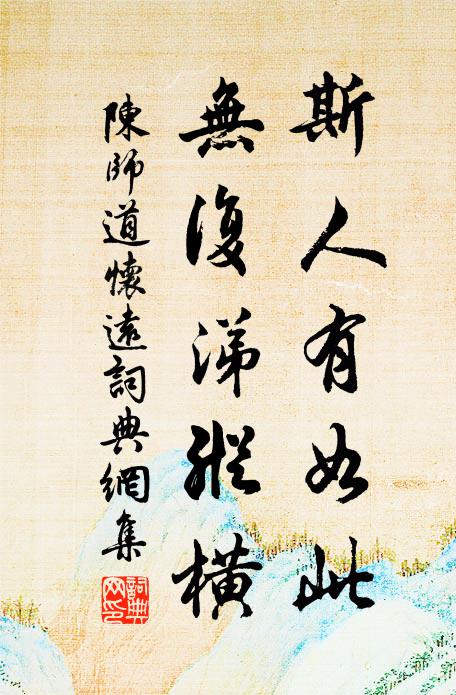 斯人有如此
無復涕縱橫
陳師道懷遠詞典網集
詞典网印